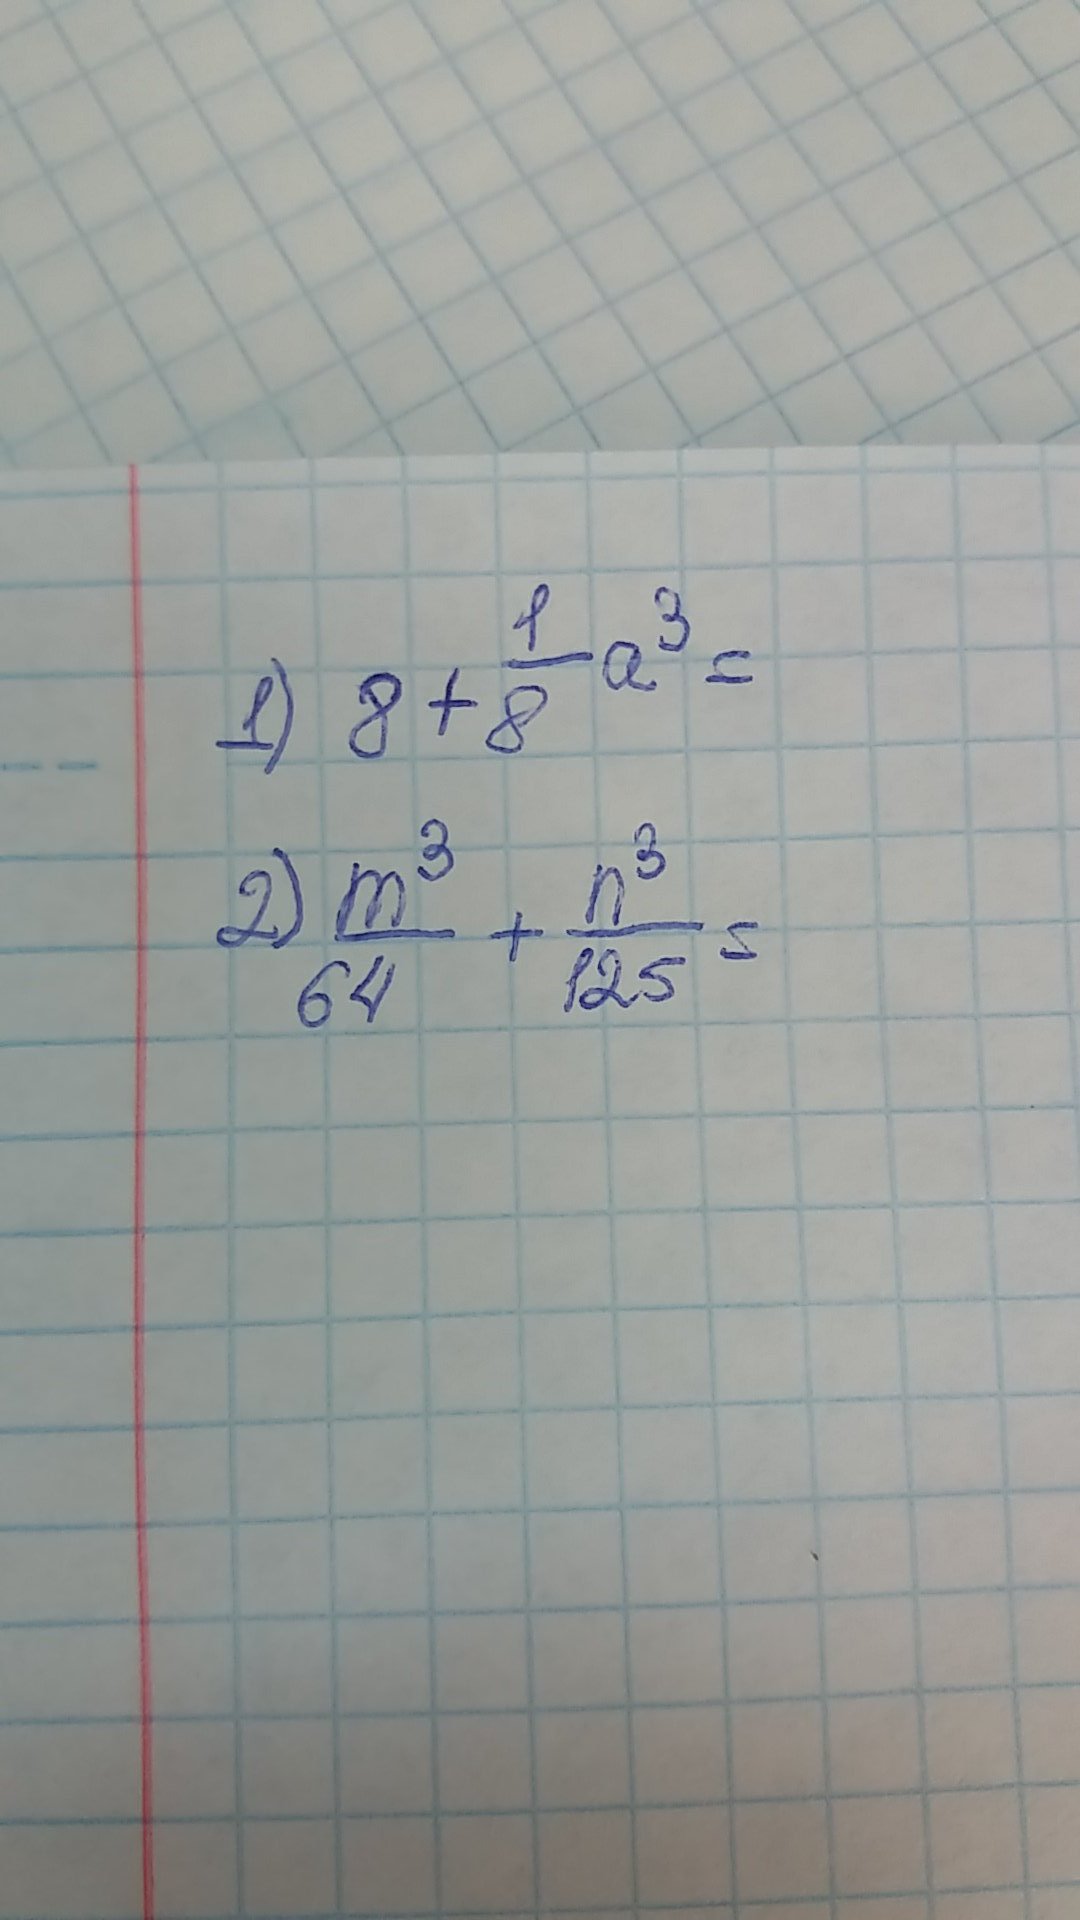 1) 8 + 1/8 a³ =
2) m³/64 + n³/125 =